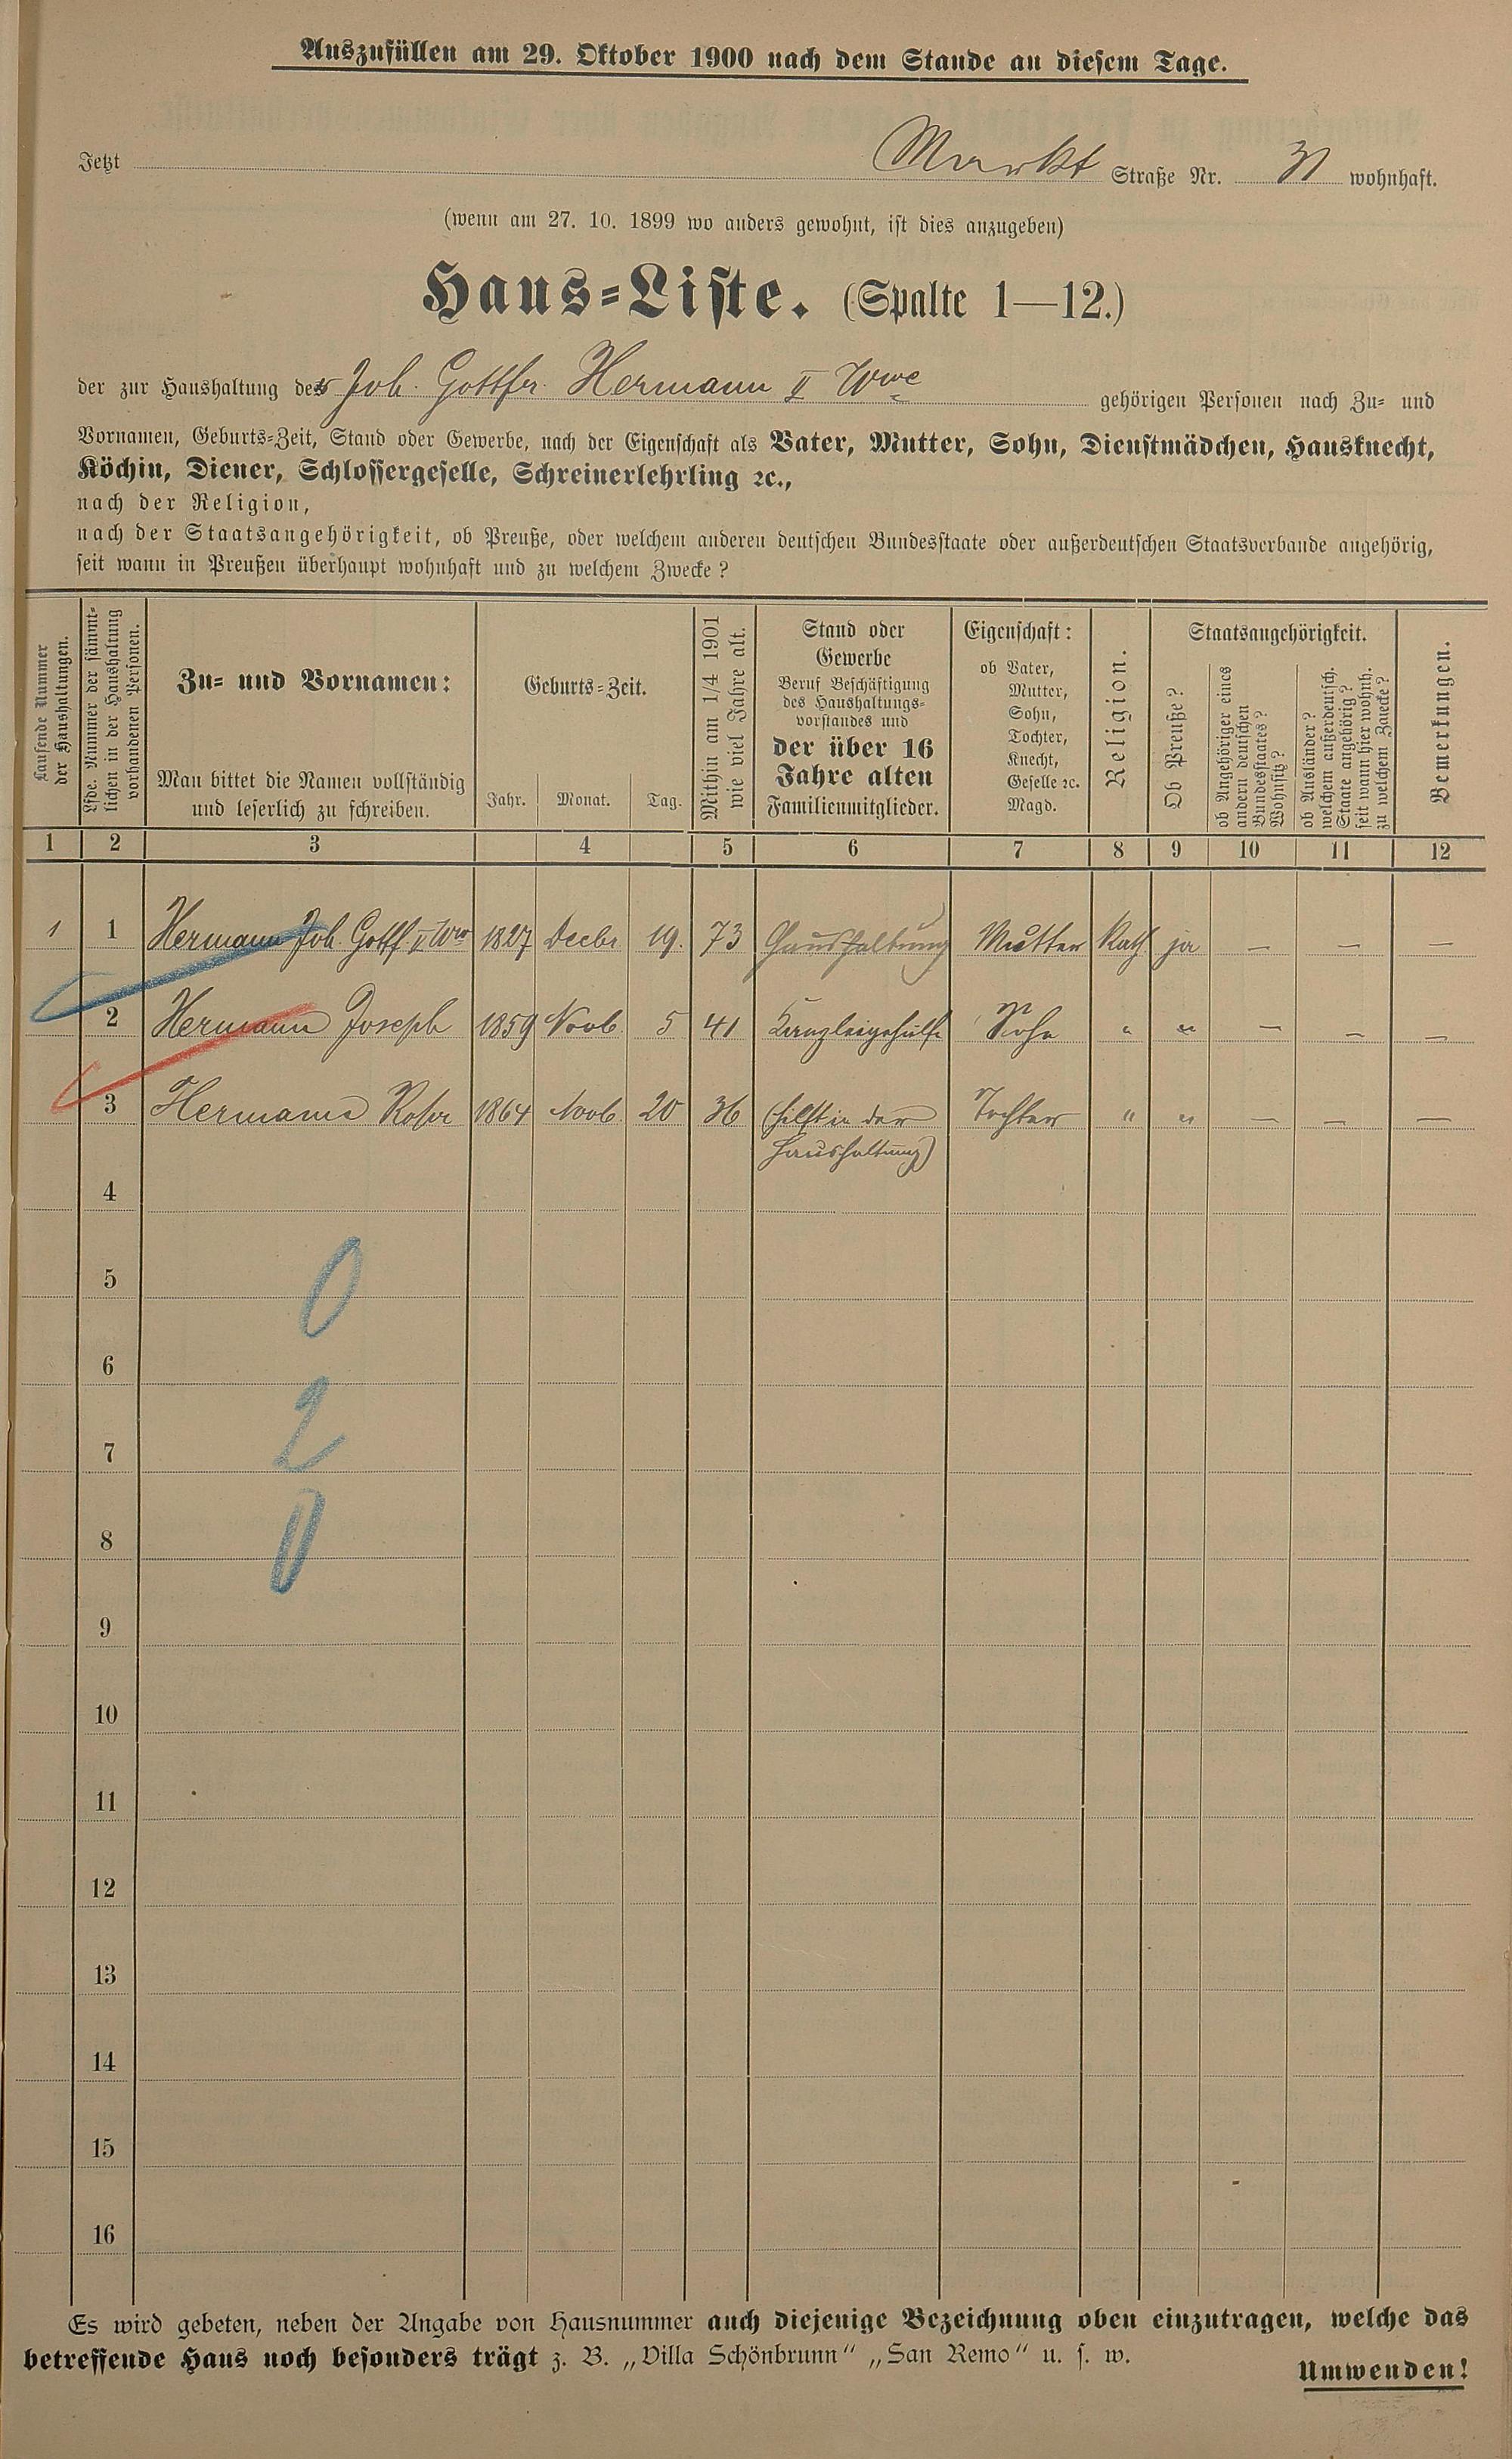 Auszufüllen am 29. Oktober 1900 nach dem Stande an diesem Tage.
Jetzt Markt Straße Nr. 31 wohnhaft.
(wenn am 27. 10. 1899 wo anders gewohnt, ist dies anzugeben)
Haus-Liste. (Spalte 1—12.)
der zur Haushaltung des Joh. Gottfr. Hermann II Wwe gehörigen Personen nach Zu- und
Vornamen, Geburts-Zeit, Stand oder Gewerbe, nach der Eigenschaft als Vater, Mutter, Sohn, Dienstmädchen, Hausknecht,
Köchin, Diener, Schlossergeselle, Schreinerlehrling ꝛc.,
nach der Religion,
nach der Staatsangehörigkeit, ob Preuße, oder welchem anderen deutschen Bundesstaate oder außerdeutschen Staatsverbande angehörig,
seit wann in Preußen überhaupt wohnhaft und zu welchem Zwecke?
Laufende Nummer
der Haushaltungen.
Lfde. Nummer der sämmt-
lichen in der Haushaltung
vorhandenen Personen.
Zu- und Vornamen:
Man bittet die Namen vollständig
und leserlich zu schreiben.
Geburts-Zeit.
Jahr. Monat. Tag.
Mithin am 1/4 1901
wie viel Jahre alt.
Stand oder
Gewerbe
Beruf Beschäftigung
des Haushaltungs-
vorstandes und
der über 16
Jahre alten
Familienmitglieder.
Eigenschaft:
ob Vater,
Mutter,
Sohn,
Tochter,
Knecht,
Geselle ꝛc.
Magd.
Religion.
Staatsangehörigkeit.
Ob Preuße?
ob Angehöriger eines
andern deutschen
Bundesstaates?
Wohnsitz?
ob Ausländer?
welchem außerdeutsch.
Staate angehörig?
seit wann hier wohnh.
zu welchem Zwecke?
Bemerkungen.
1 2 3 4 5 6 7 8 9 10 11 12
1 1 Hermann Joh. Gottf. II Wwe 1827 Decbr 19. 73 Haushaltung Mutter Kath ja — — —
2 Hermann Joseph 1859 Novb. 5 41 Kanzleigehülfe Sohn " " — — —
3 Hermann Rosa 1864 Novb. 20 36 (hilft in der Tochter " " — — —
Haushaltung)
4
5
0
6
2
7
8
0
9
10
11
12
13
14
15
16
Es wird gebeten, neben der Angabe von Hausnummer auch diejenige Bezeichnung oben einzutragen, welche das
betreffende Haus noch besonders trägt z. B. „Villa Schönbrunn" „San Remo" u. s. w.
Umwenden!